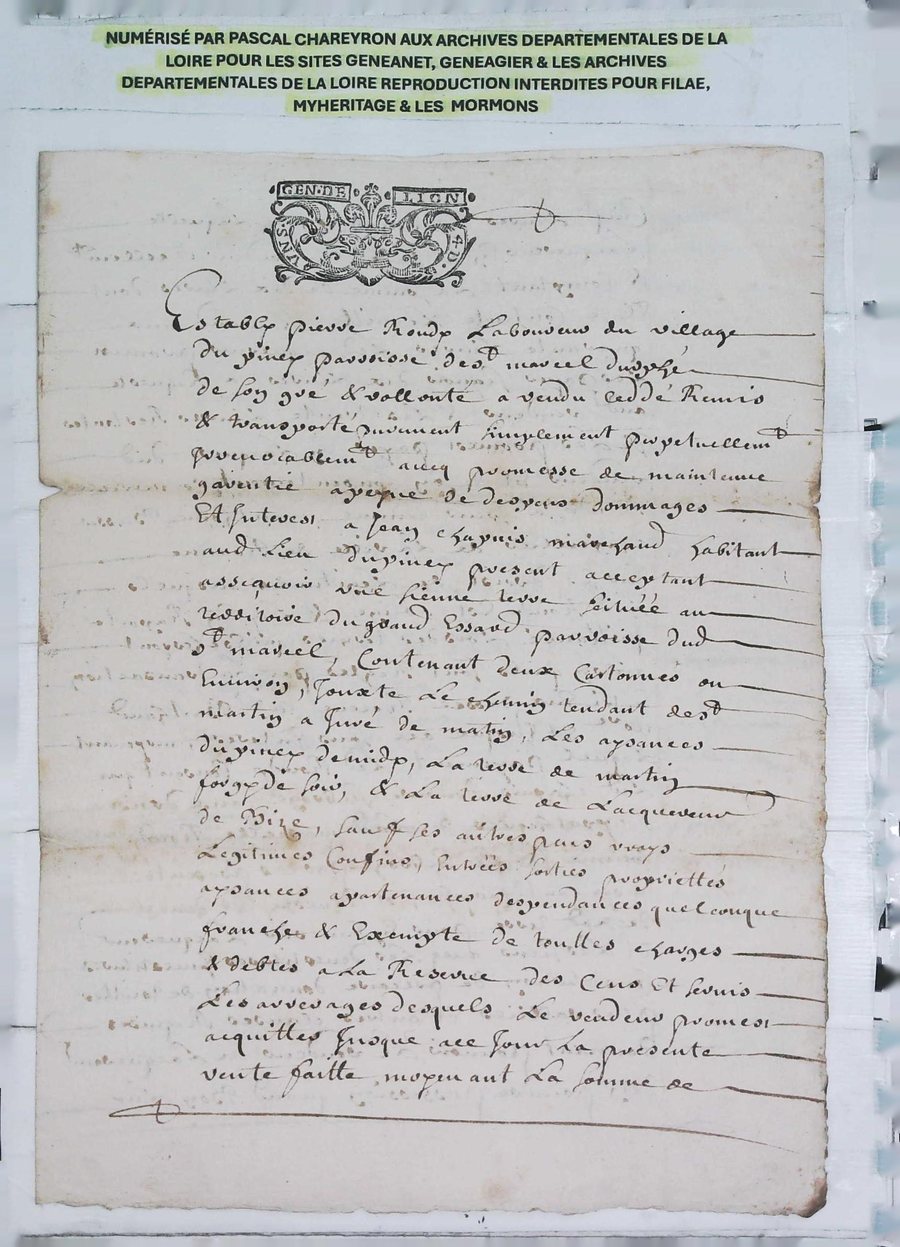 NUMÉRISÉ PAR PASCAL CHAREYRON AUX ARCHIVES DEPARTEMENTALES DE LA
LOIRE POUR LES SITES GENEANET, GENEAGIER & LES ARCHIVES
DEPARTEMENTALES DE LA LOIRE REPRODUCTION INTERDITES POUR FILAE,
MYHERITAGE & LES MORMONS
GEN·DE LION
VN S 4·D
Estably pierre Rondy Laboureur du village
du piney parroisse de st marcel
de son gré & vollonté a vendu ceddé Remis
& transporté purement simplement perpetuellemt
Irrevocablemt avecq promesse de maintenue
garentie a peyne de despens dommages
Et Interest a Jean chapuis marchand habitant
aud Lieu du piney present acceptant
asscavoir une sienne terre scituée au
territoire du grand Essard parroisse dud
st marcel, Contenant deux Cartonnés ou
Environ, Jouxte Le chemin tendant de st
martin a Juré de matin, Les aysances
du piney de midy, La terre de martin
de soir, & La terre de Lacquereur
de Bize, sauf ses autres plus vrays
Legitimes Confins, Entrées sorties proprietés
aysances apartenances despendances quelconque
franche & Exempte de touttes charges
& debtes a La Reserve des Cens Et servis
Les arrerages desquels Le vendeur promest
acquitter Jusque a ce Jour La presente
vente faitte moyenant La somme de